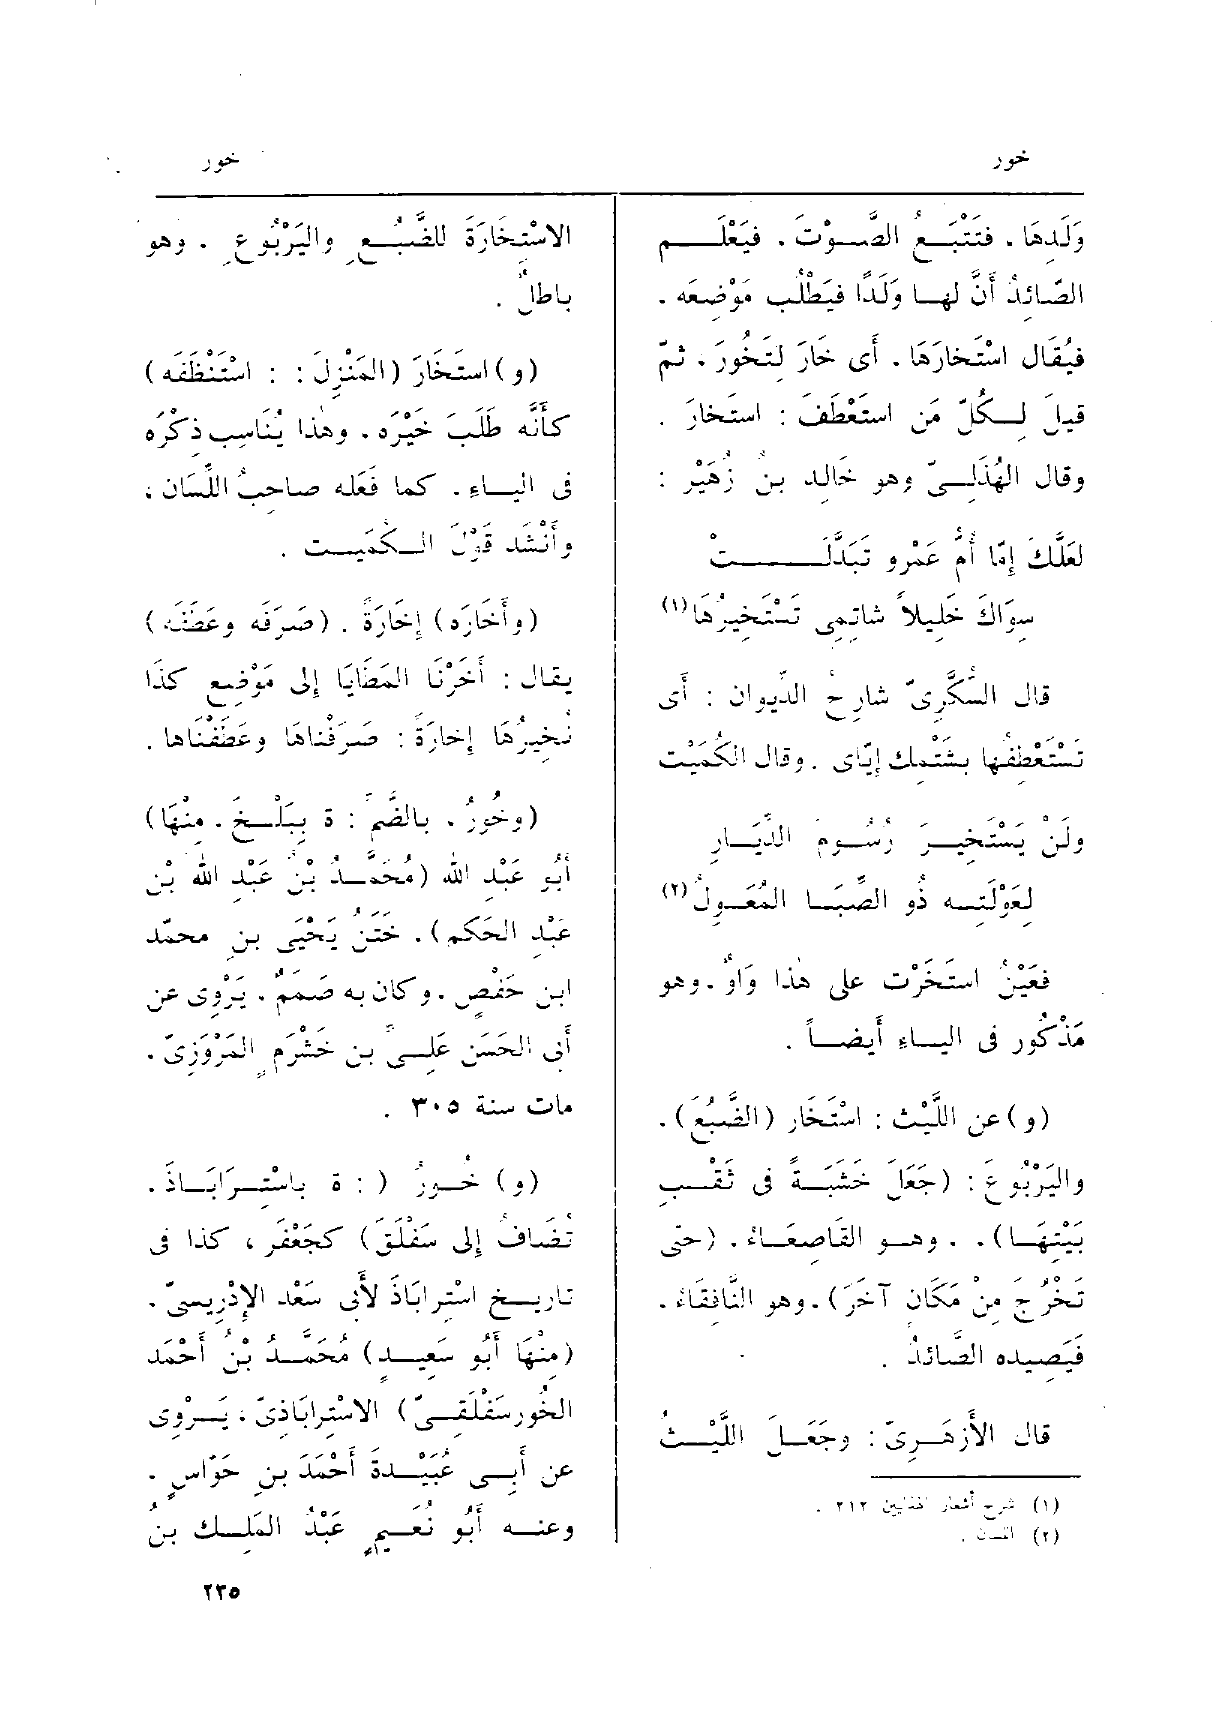 خور
خور
وَلَدِهَا ، فتَتْبَعُ الصَّوْتَ ، فيَعْلَم
الصّائِدُ أَنَّ لها وَلَدًا فيَطْلُب مَوْضِعَه .
فيُقَال اسْتَخارَها ، أى خَارَ لتَخُورَ ، ثمّ
قيلَ لِكُلّ مَن اسْتَعْطَفَ : اسْتَخارَ .
وقال الهُذَلِىّ وهو خَالِد بنُ زُهَيْر :
لعَلَّكَ إِمّا أُمُّ عَمْرٍو تَبَدَّلَتْ
سِوَاكَ خَلِيلاً شاتِمِى تَسْتَخِيرُهَا (١)
قال السُّكَّرِىّ شارِحُ الدِّيوان : أَى
تَسْتَعْطِفُها بشَتْمِك إِيّاى . وقال الكُمَيْت
ولَنْ يَسْتَخِيرَ رُسُومَ الدِّيَارِ
لِعَوْلَتِه ذُو الصِّبَا المُعْوِلُ (٢)
فعَيْنُ اسْتَخَرْت على هٰذا وَاوٌ . وهو
مَذْكُور فى الياءِ أَيضاً .
(و) عن اللَّيْث : اسْتَخَار (الضَّبُعَ) ،
واليَرْبُوعَ : (جَعَلَ خَشَبَةً فى ثَقْبِ
بَيْتِهَا) ، . وهو القَاصِعَاءُ ، (حتى
تَخْرُجَ مِنْ مَكَانٍ آخَرَ) ، وهو النَّافِقَاءُ ،
فيَصِيده الصّائدُ .
قال الأَزْهَرِىّ : وجَعَلَ اللَّيْثُ
(١) شرح أشعار الهذليين ٢١٢ .
(٢) اللسان .
الاسْتِخَارَةَ للضَّبُعِ واليَرْبُوعِ ، وهو
باطلٌ .
(و) اسْتَخَارَ (المَنْزِلَ : : اسْتَنْظَفَه)
كأَنَّه طَلَبَ خَيْرَه ، وهٰذا يُنَاسِب ذِكْرُه
فى الياءِ ، كما فَعَلَه صاحبُ اللِّسَان ،
وأَنْشَد قَوْلَ الكُمَيْت .
(وأَخَارَه) إِخَارَةً . (صَرَفَه وعَطَفَه)
يقال : أَخَرْنَا المَطَايَا إِلى مَوْضِعِ كذَا
نُخِيرُهَا إِخارَةً : صَرَفْناهَا وعَطَفْنَاها .
(وخُورُ ، بالضَّمّ : ة ببَلْخَ ، مِنْهَا)
أَبُو عَبْد الله (مُحَمَّدُ بْنُ عَبْدِ الله بنِ
عَبْدِ الحَكَم) ، خَتَنُ يَحْيَى بنِ محمّد
ابنِ حَفْصٍ ، وكان به صَمَمٌ ، يَرْوِى عن
أَبى الحَسَن عَلِىّ بنِ خَشْرَمٍ المَرْوَزِىّ ،
مات سنة ٣٠٥ .
(و) خُورُ ( : ة باسْتِرَابَاذَ ،
تُضَافُ إِلى سَفْلَقَ) كجَعْفَر ، كذا فى
تاريخِ اسْتِرابَاذَ لأَبى سَعْد الإِدْرِيسىّ .
(مِنْهَا أَبُو سَعِيدٍ) مُحَمَّدُ بْنُ أَحْمَد
الخُورسَفْلَقِىّ) الاسْتِرابَاذِىّ ، يَرْوِى
عن أَبِى عُبَيْدَةَ أَحْمَدَ بنِ حَوّاسٍ ،
وعنه أَبُو نُعَيْمٍ عَبْدُ المَلِك بنُ
٢٣٥